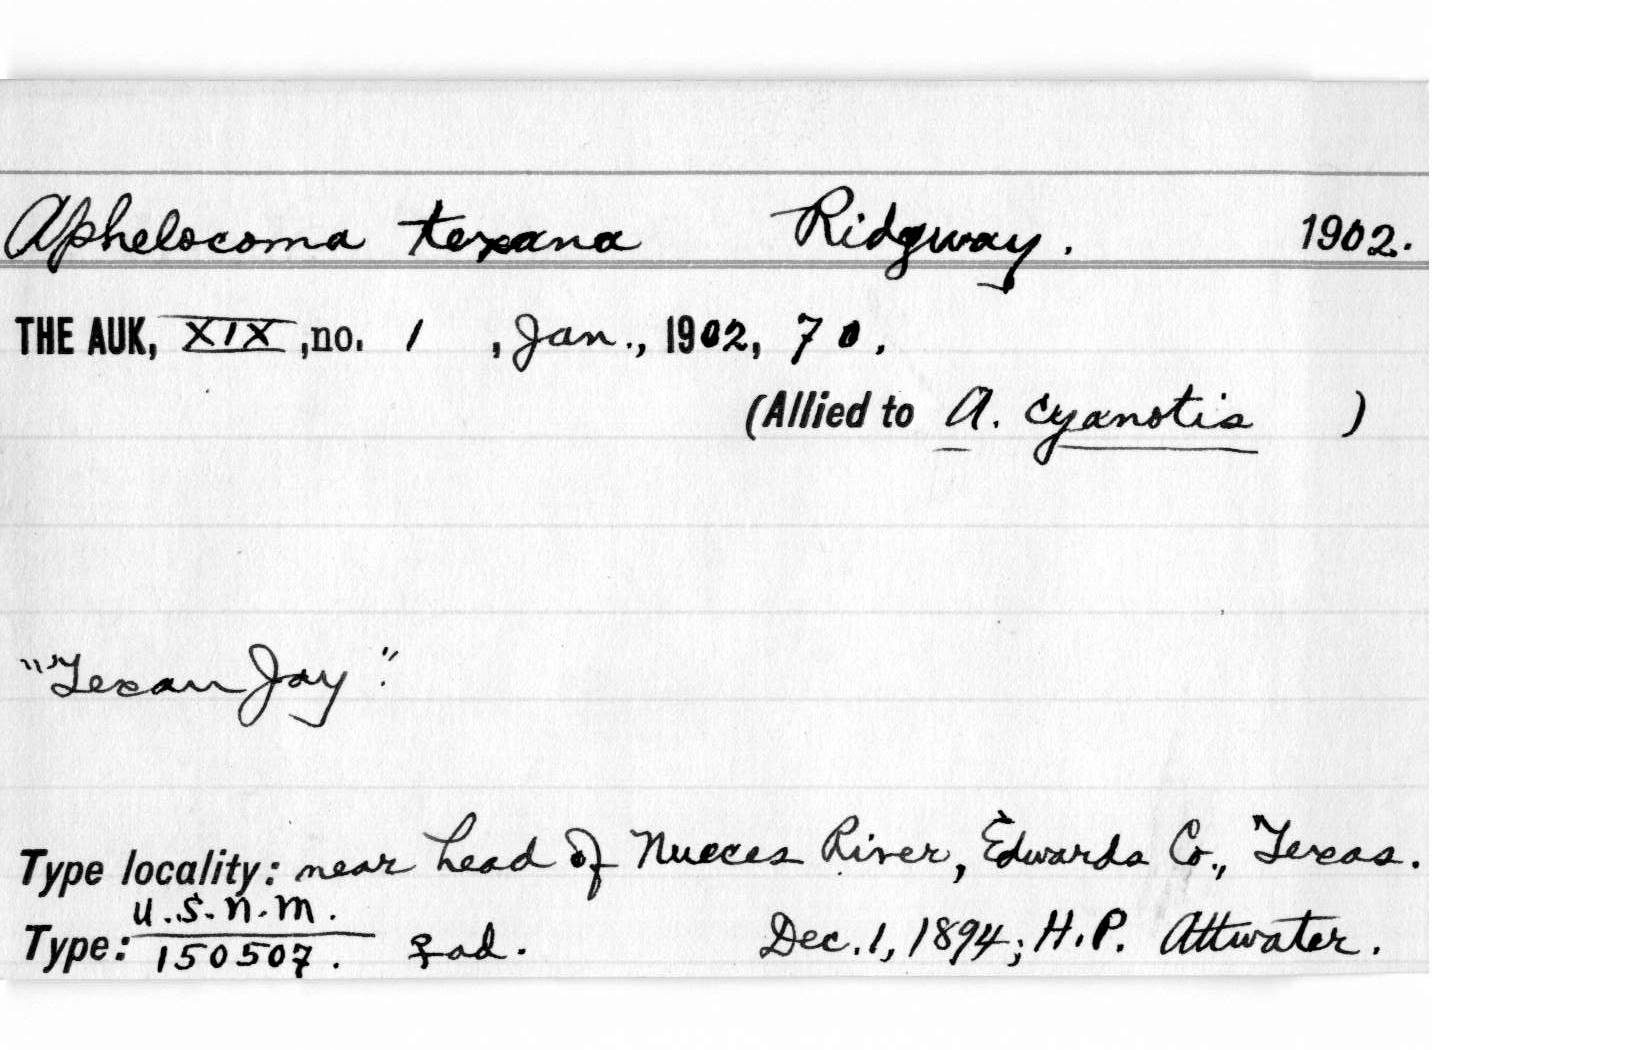 Aphelocoma texana Ridgway. 1902.
THE AUK, XIX, no. 1, Jan., 1902, 70.
(Allied to A. cyanotis )
"Texan Jay".
Type locality: near head of Nueces River, Edwards Co., Texas.
U.S.N.M.
Type: 150507. ♀ ad. Dec. 1, 1894; H.P. Attwater.